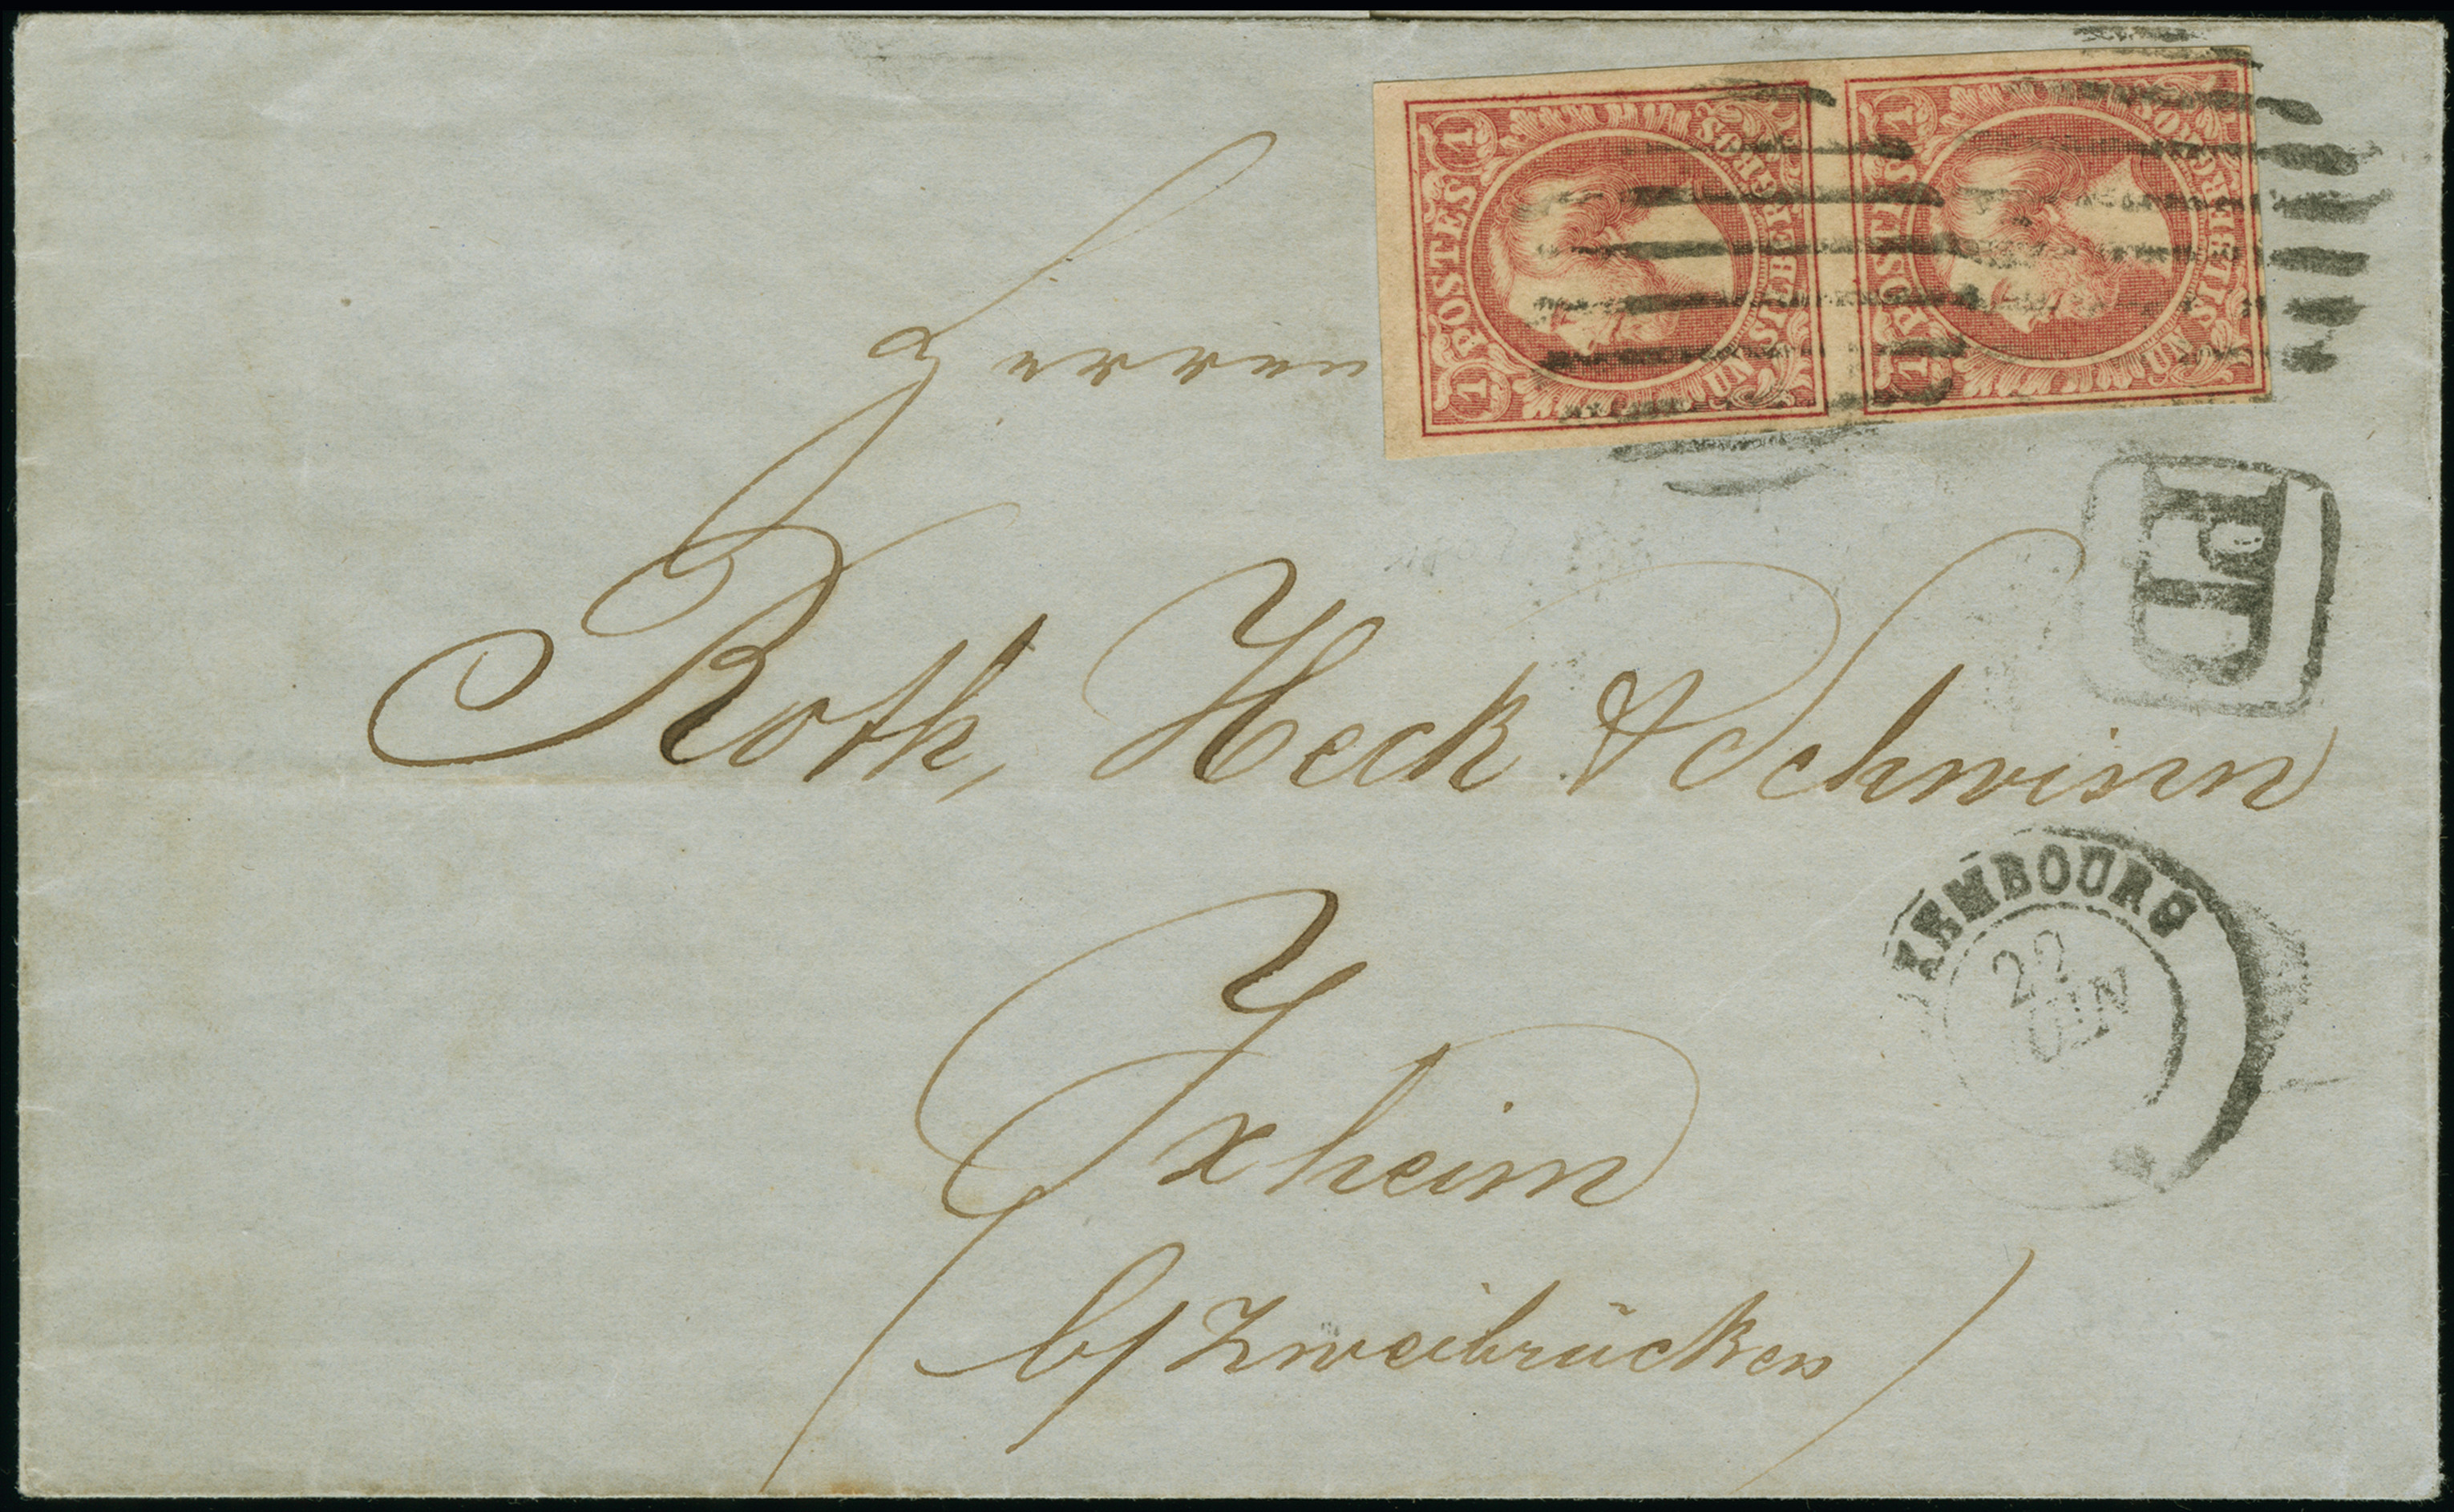 POSTES
1
1
UN SILBERGROS
POSTES
1
1
UN SILBERGROS
Herren
PD
Roth, Heck & Schwinn
XEMBOURG
22
UIN
Ixheim
b/Zweibrücken